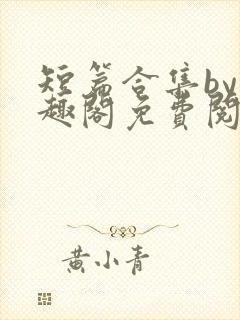 短篇合集by
趣阁免費閱
黄小青